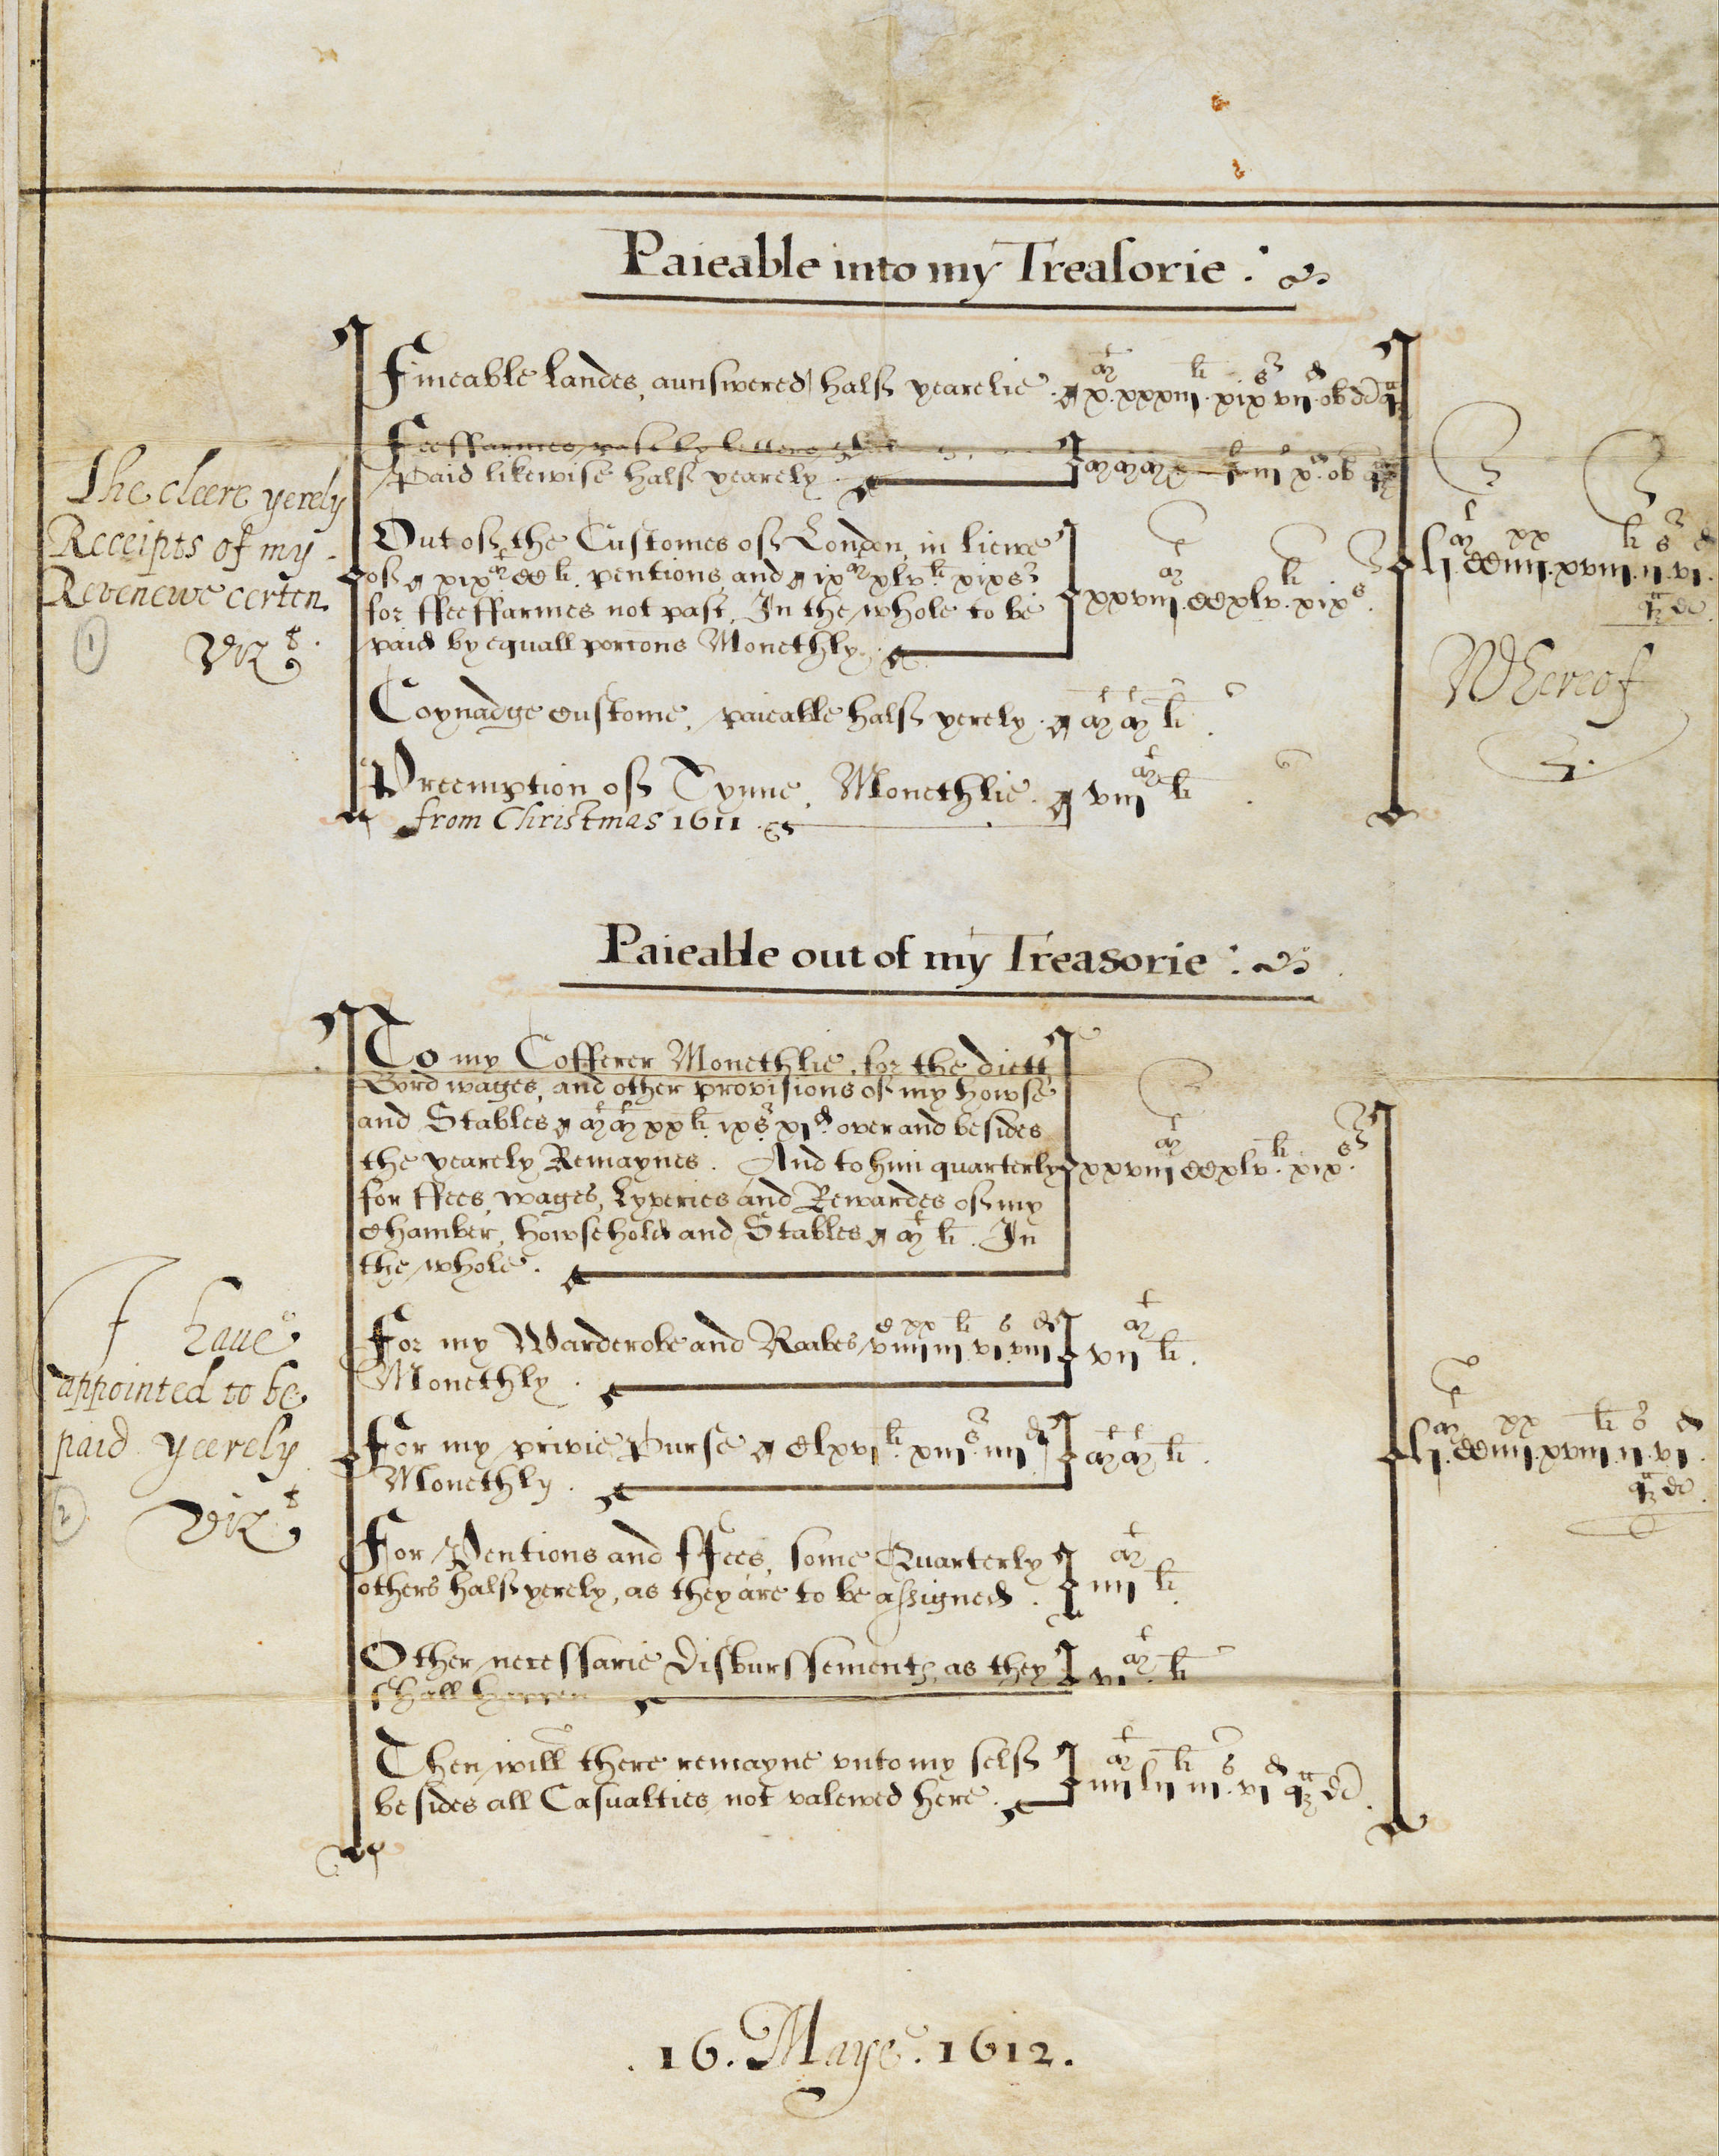 Paieable into my Treasorie :
Fineable landes, aunswered half yearelie. x.xxxiij li. xix s vij d. ob
The cleere yerely
Receipts of my
Revenewe certen.
1
viz
Feeffarmes past by letters
Paid likewise half yearely.
Out of the Customes of London, in liewe
of xix m CC li. pentions, and ix m xlv li. xix s
for ffeeffarmes not past, In the whole to be
paid by equall portons Monethly.
xxviij m CCxlv li. xix s.
lj m CCiiij xx xviij li. ij s. vj d.
Coynadge Custome, paieable half yerely. m m li.
Whereof
Preemption of Tynne, Monethlie. viij m li.
from Christmas 1611.
Paieable out of my Treasorie :
To my Cofferer Monethlie, for the diett
Bord wages, and other provisions of my howse
and Stables m m xx li. ix s. xj d. over and besides
the yearely Remaynes. And to him quarterly
for ffees, wages, Lyveries and Rewardes of my
Chamber, howsehold and Stables m li. In
the whole.
xxviij m CCxlv li. xix s.
I haue
appointed to be
paid yeerely
2
viz
For my Warderobe and Roabes v C iiij xx iij li vj s viij d
Monethly.
vij m li.
For my privie Purse Clxvj li. xiij s. iiij d
Monethly.
m m li.
lj m CCiiij xx xviij li. ij s. vj d.
For Pentions and ffees, some Quarterly
others half yerely, as they are to be assigned.
iiij m li.
Other necessarie Disburssementes, as they
shall happen
vj m li
Then will there remayne vnto my self
besides all Casualties not valewed here.
iiij m lij li iij s. vj d
.16. Maye. 1612.